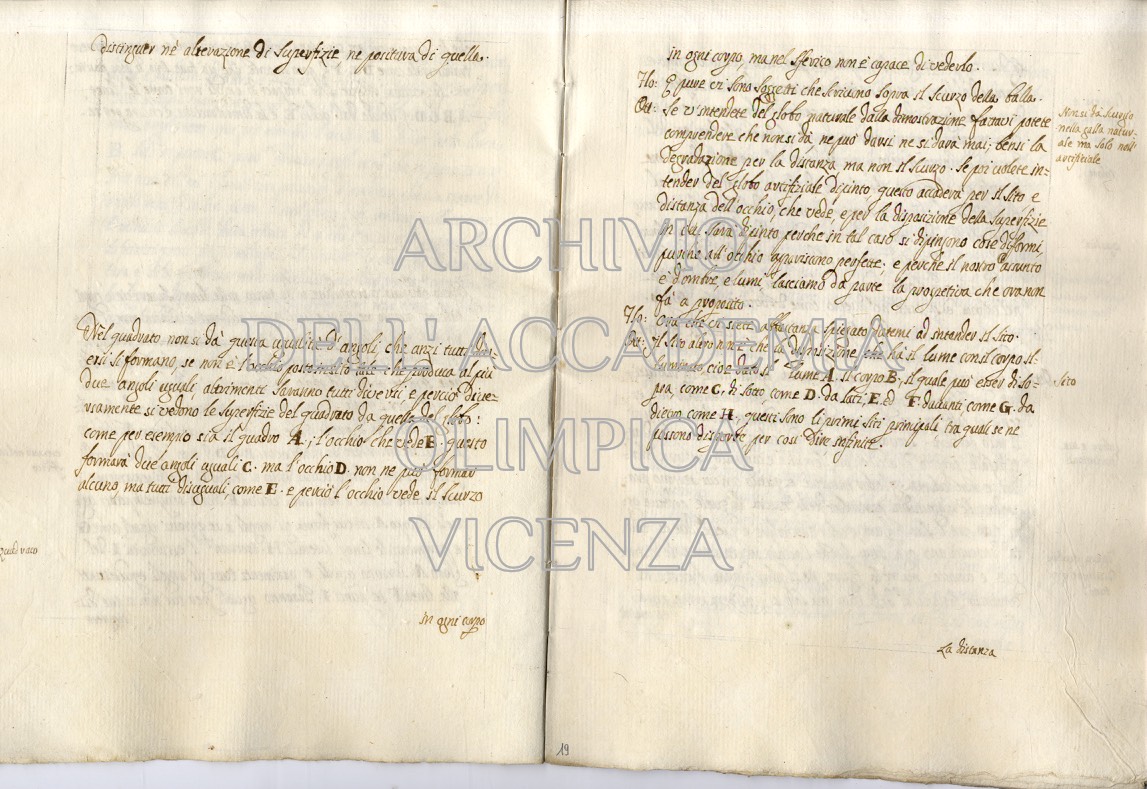 Distinguer nè alterazione di superfizie ne positura di quella.
Nel quadrato non si dà questa equalità d'angoli, che anzi tutti div-
ersi si formano, se non è l'occhio posto nello
due angoli uguali, altrimenti saranno tutti diversi, e perciò dive-
rsamente si vedono le superfizie del quadrato da quelle del globo:
come per esempio sia il quadro A. l'occhio che vede E. questo
formarà due angoli uguali C. ma l'occhio D. non ne può formar
alcuno, ma tutti disiguali, come E. e perciò l'occhio vede il scurzo
quadrato
in ogni corpo
in ogni corpo, ma nel sferico non è capace di vederlo.
Flo: E pure vi sono soggetti che scrivino sopra il scurzo della balla.
Ott: Se v'intendete del globo naturale dalla dimostrazione fattavi potete
comprendere che non si dà, ne può darsi ne si darà mai; bensi la
degradazione per la distanza, ma non il scurzo. Se poi volete in-
tender del globo artifiziale dipinto, questo accaderà per il sito e
distanza dell'occhio, che vede, e per la disposizione della superfizie
in cui sarà dipinto perche in tal caso si dipingono cose difformi,
purche all'occhio appariscano perfette. e perche il nostro assunto
è d'ombre, e lumi lasciamo da parte la prospetiva che ora non
fà a proposito.
Flo: Ora che vi siete abbastanza spiegato datemi ad intender il sito.
Ott: Il sito altro non è che la disposizione che hà il lume con il corpo il-
luminato, cioè dato il lume A. il corpo B, il quale può esser di so-
pra, come C, di sotto, come D. da lati, E, ed F. davanti, come G. da
dietro come H. questi sono li primi siti principali tra quali se ne
possono disporre per così dire infiniti.
Non si dà scurzo
nella balla natur-
ale ma solo nell'
artificiale
sito
La distanza
19
ARCHIVIO
DELL'ACCADEMIA
OLIMPICA
VICENZA